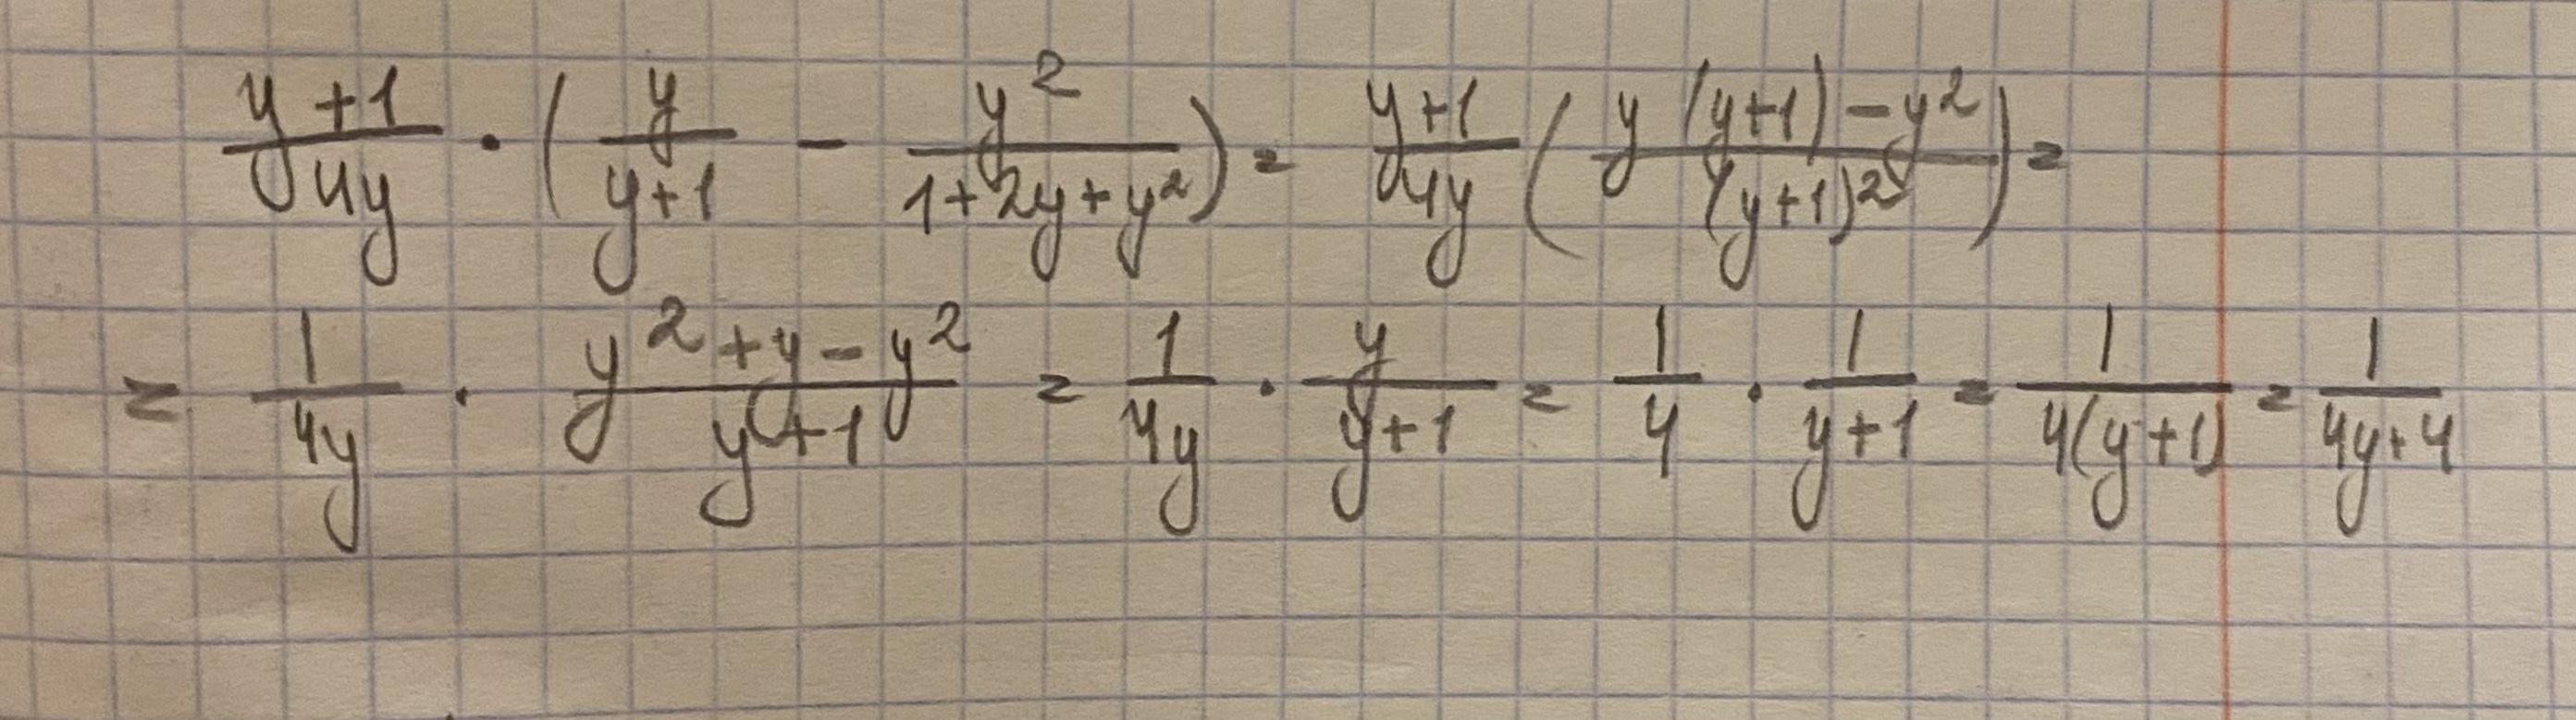 \frac{y+1}{4y} \cdot \left( \frac{y}{y+1} - \frac{y^2}{1+2y+y^2} \right) = \frac{y+1}{4y} \left( \frac{y(y+1)-y^2}{(y+1)^2} \right) =
= \frac{1}{4y} \cdot \frac{y^2+y-y^2}{y+1} = \frac{1}{4y} \cdot \frac{y}{y+1} = \frac{1}{4} \cdot \frac{1}{y+1} = \frac{1}{4(y+1)} = \frac{1}{4y+4}